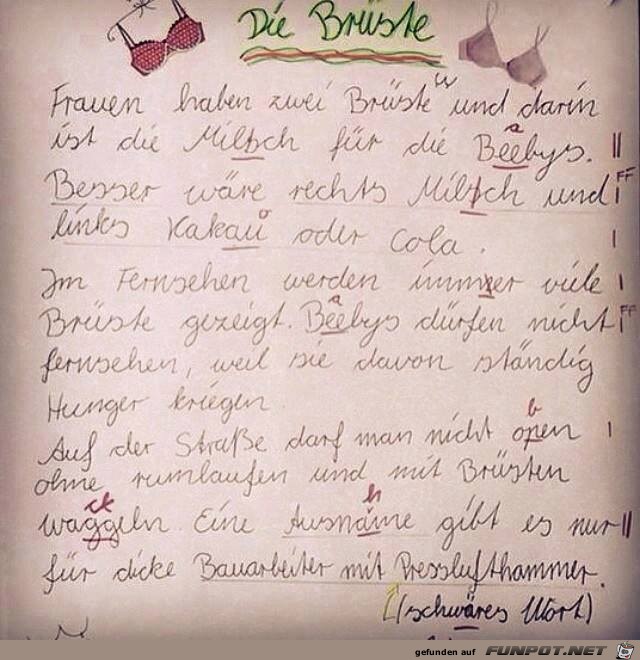 Die Brüste
Frauen haben zwei Brüste und darin
ist die Miltsch für die Beebys. a ||
Besser wäre rechts Miltsch und FF
links Kakau oder Cola. o |
Im Fernsehen werden immer viele |
Brüste gezeigt. Beebys dürfen nicht a FF
fernsehen, weil sie davon ständig
Hunger kriegen.
Auf der Straße darf man nicht open b |
ohne rumlaufen und mit Brüsten
waggeln. Eine Ausnáme gibt es nur ck h ||
für dicke Bauarbeiter mit Presslufthammer.
(schwäres Wort)
gefunden auf FUNPOT.NET